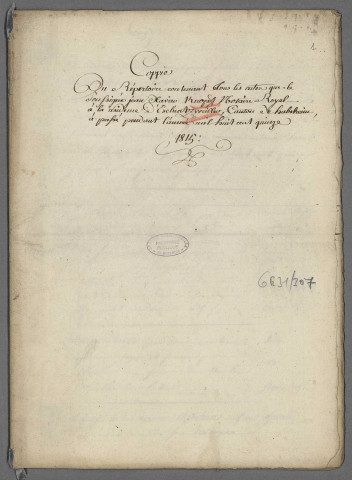 1.
Coppie
Du Répertoire contenant tous les actes que le
Soussigné jean Xavier Notaire Royal
à la résidence Canton de
a passé pendant l'année mil huit cent quinze
1815.
6E31/207